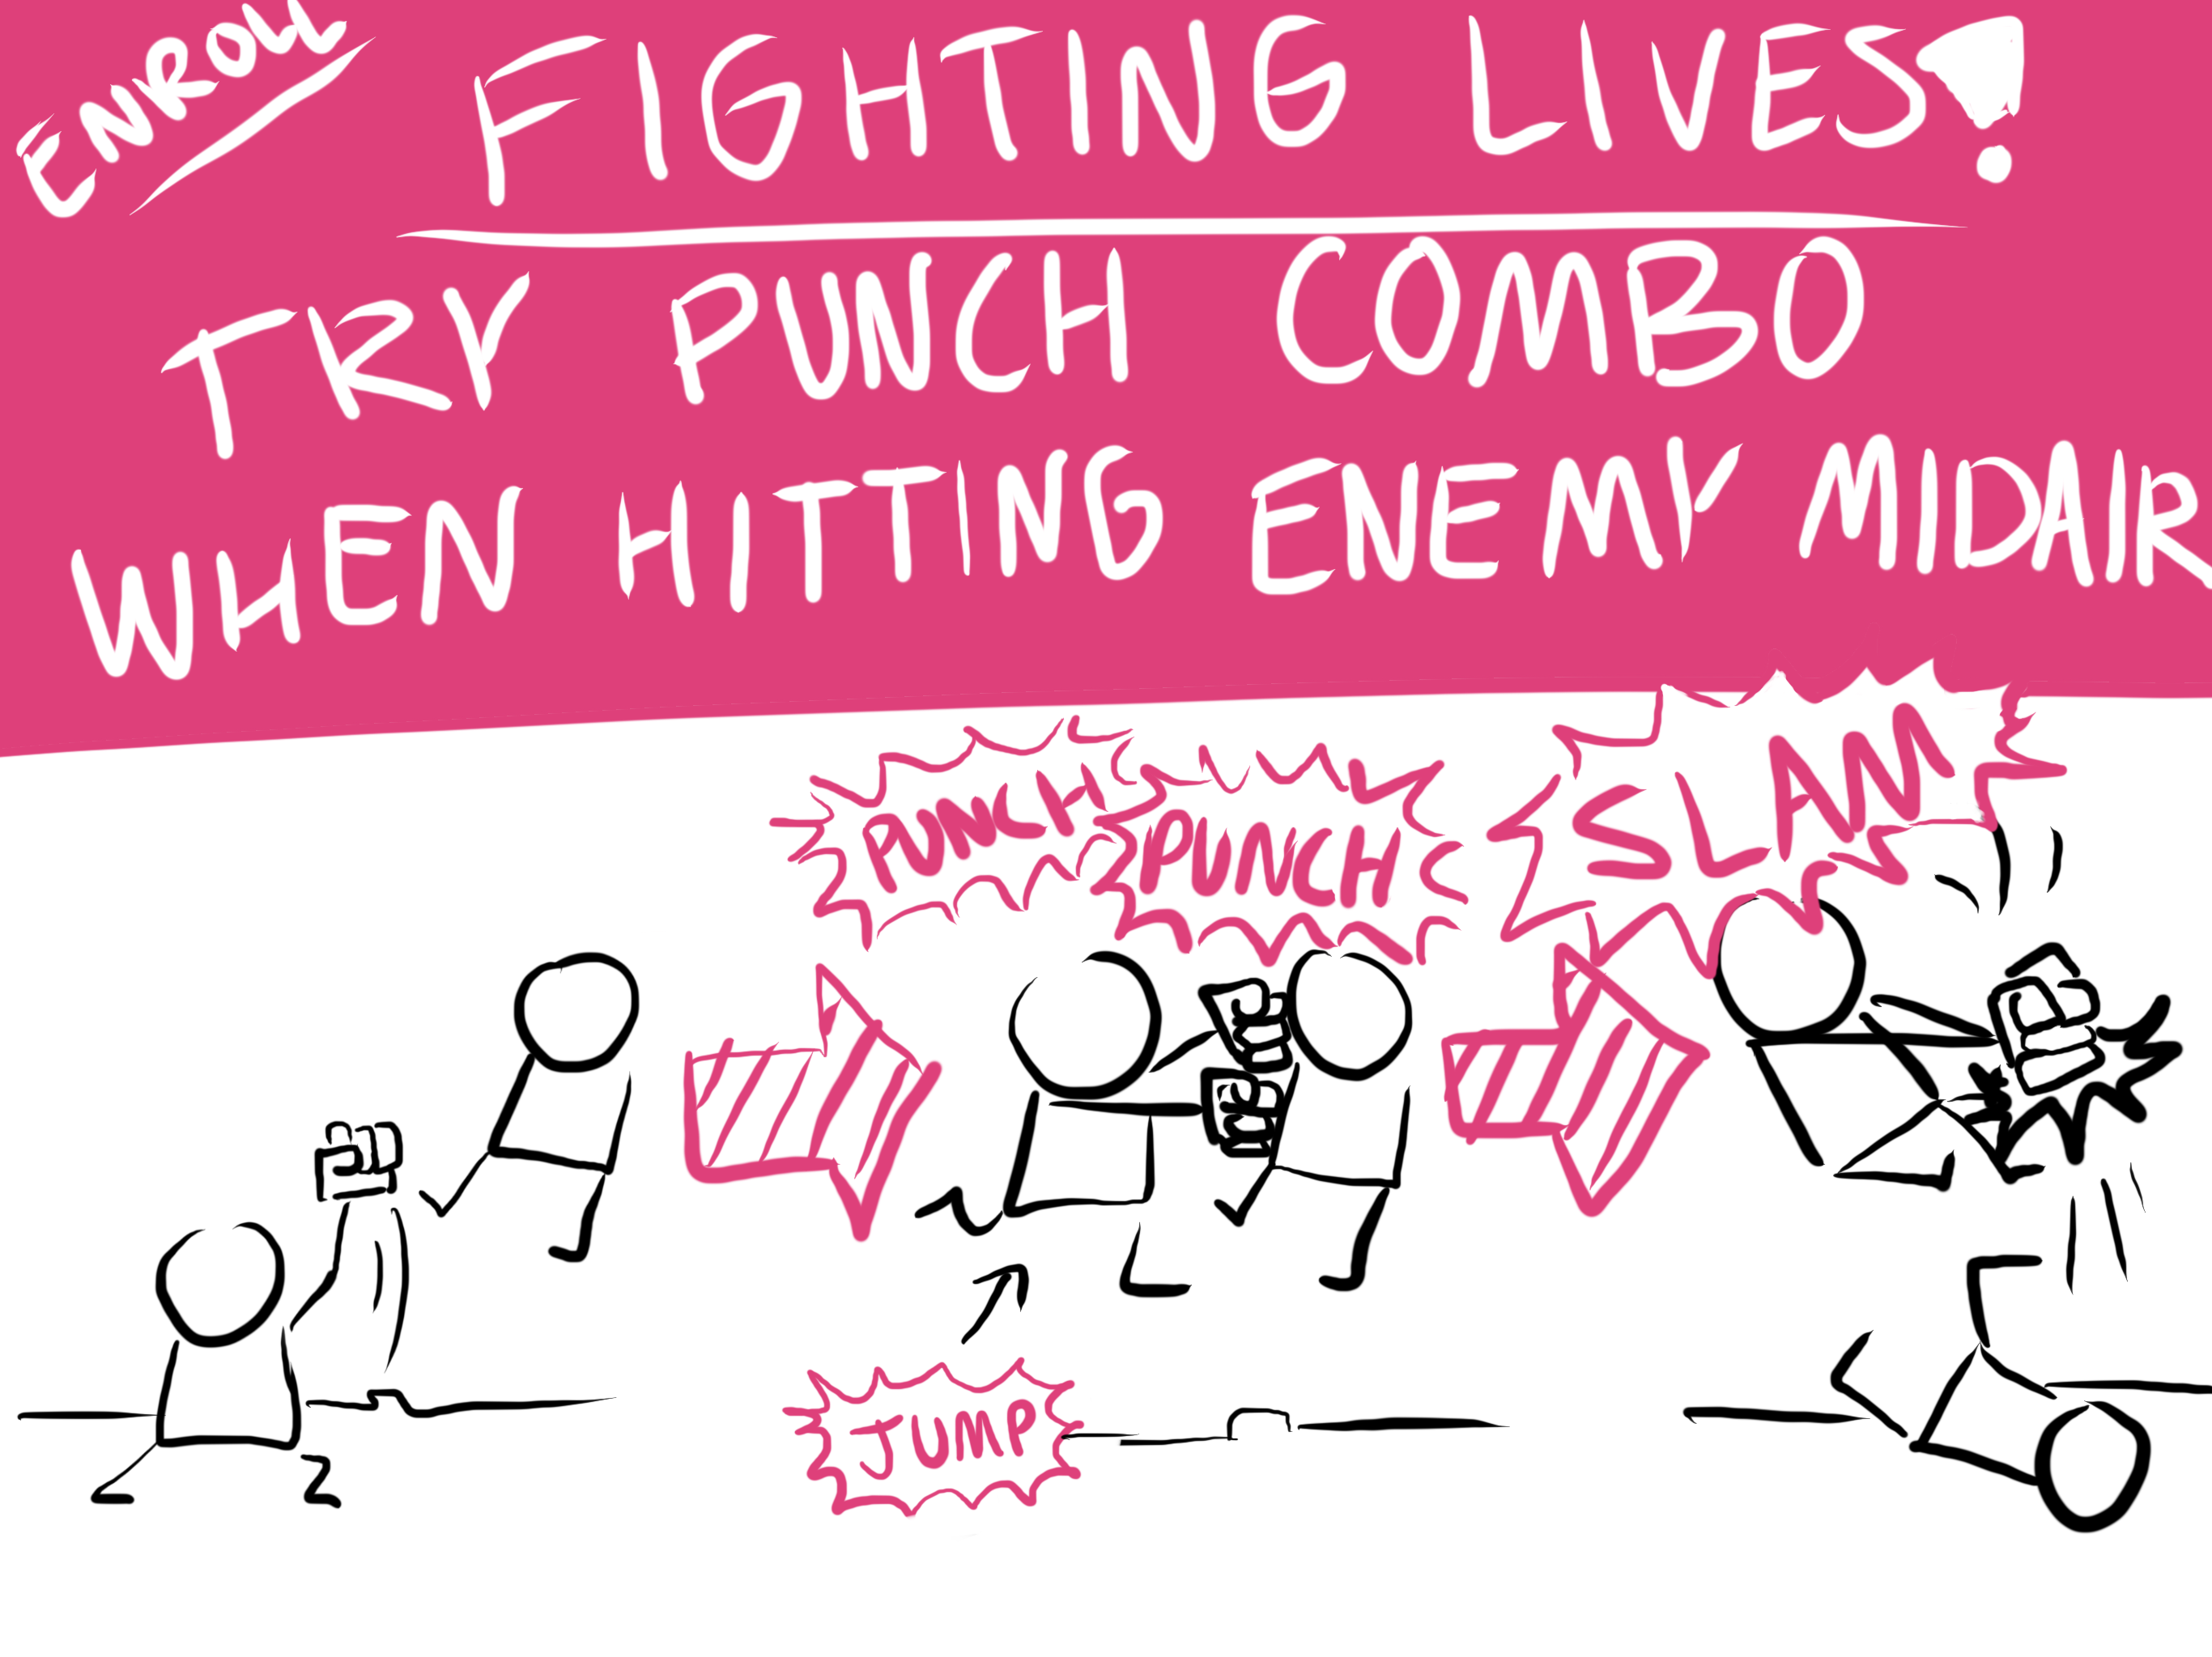 ENROLL
FIGHTING LIVES!
TRY PUNCH COMBO
WHEN HITTING ENEMY MIDAIR
PUNCH
PUNCH
SLAM
JUMP